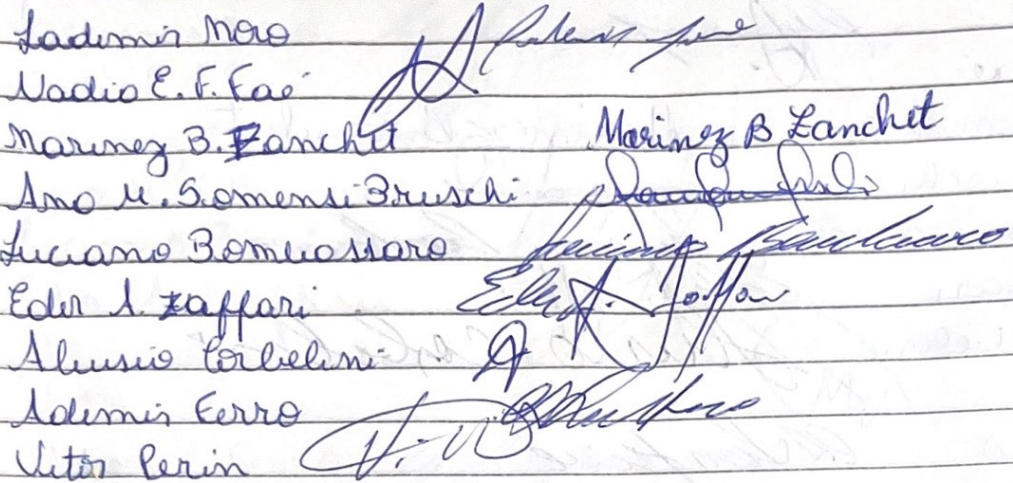 Ladimir Nero
Nadio E. F. Faé
Marinez B. Zanchet Marinez B Zanchet
Ana M. Somensi Bruschi
Luciano Bomcossaro
Eder A. Zaffari Eder A. Zaffari
Aluisio Corbelini
Ademir Ferro
Vitor Perin